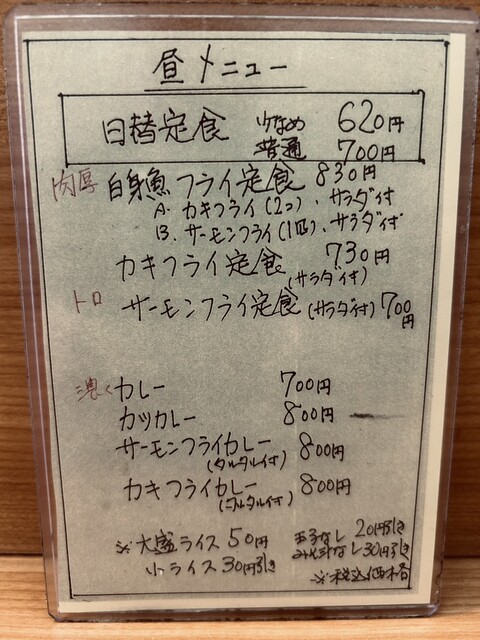 昼メニュー
日替定食 少なめ 620円
普通 700円
肉厚 白身魚フライ定食 830円
A. カキフライ(2コ)、サラダ付
B. サーモンフライ(1匹)、サラダ付
カキフライ定食 730円
(サラダ付)
トロ サーモンフライ定食(サラダ付) 700円
カレー 700円
カツカレー 800円
サーモンフライカレー 800円
(タルタル付)
カキフライカレー 800円
(タルタル付)
※大盛ライス 50円 玉子なし 20円引き
小ライス 30円引き みそ汁なし 30円引き
※税込価格